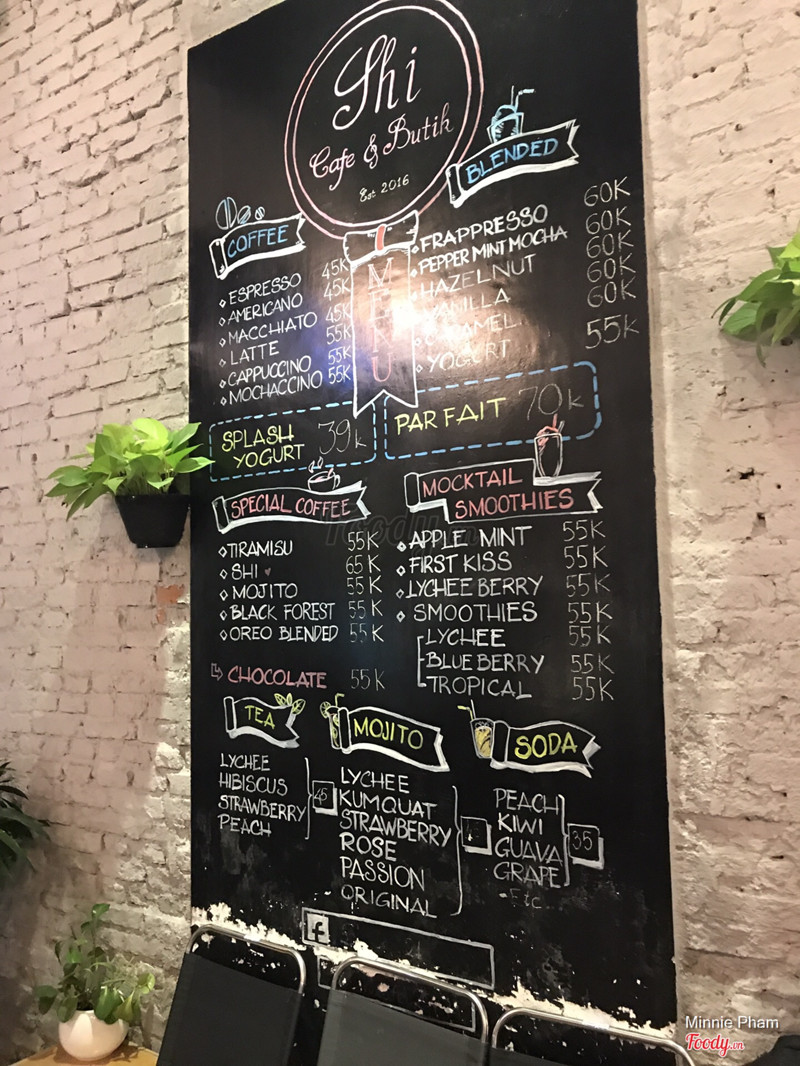 Shi
Cafe & Butik
Est 2016
MENU
COFFEE
ESPRESSO 45K
AMERICANO 45K
MACCHIATO 45K
LATTE 55K
CAPPUCCINO 55K
MOCHACCINO 55K
BLENDED
FRAPPRESSO 60K
PEPPER MINT MOCHA 60K
HAZELNUT 60K
VANILLA 60K
CARAMEL 60K
YOGURT 55K
SPLASH
YOGURT 39K
PARFAIT 70K
SPECIAL COFFEE
TIRAMISU 55K
SHI 65K
MOJITO 55K
BLACK FOREST 55K
OREO BLENDED 55K
CHOCOLATE 55K
MOCKTAIL
SMOOTHIES
APPLE MINT 55K
FIRST KISS 55K
LYCHEE BERRY 55K
SMOOTHIES 55K
LYCHEE 55K
BLUEBERRY 55K
TROPICAL 55K
TEA
LYCHEE
HIBISCUS
STRAWBERRY
PEACH
45
MOJITO
LYCHEE
KUMQUAT
STRAWBERRY
ROSE
PASSION
ORIGINAL
SODA
PEACH
KIWI
GUAVA
GRAPE
Etc...
35
f
Foody.vn
Minnie Pham
Foody.vn